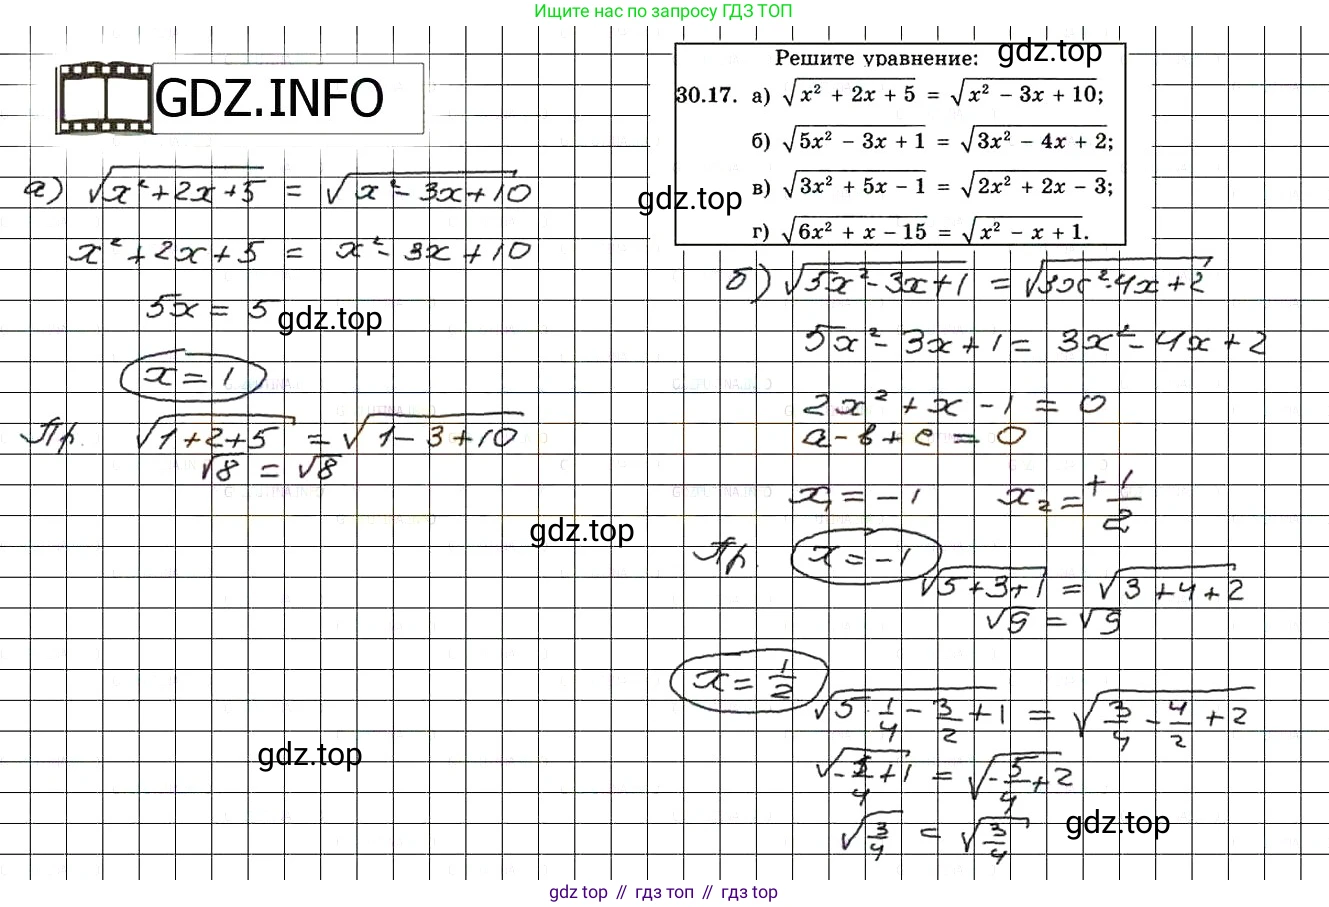 Ищите нас по запросу ГДЗ ТОП
GDZ.INFO
Решите уравнение:
gdz.top
30.17. а) √(x² + 2x + 5) = √(x² − 3x + 10);
б) √(5x² − 3x + 1) = √(3x² − 4x + 2);
в) √(3x² + 5x − 1) = √(2x² + 2x − 3);
г) √(6x² + x − 15) = √(x² − x + 1).
gdz.top
а) √(x² + 2x + 5) = √(x² − 3x + 10)
x² + 2x + 5 = x² − 3x + 10
5x = 5
gdz.top
x = 1
Пр. √(1 + 2 + 5) = √(1 − 3 + 10)
√8 = √8
б) √(5x² − 3x + 1) = √(3x² − 4x + 2)
5x² − 3x + 1 = 3x² − 4x + 2
2x² + x − 1 = 0
a − b + c = 0
x₁ = −1 x₂ = +1/2
gdz.top
Пр. x = −1
√(5 + 3 + 1) = √(3 + 4 + 2)
√9 = √9
x = 1/2
√(5 · 1/4 − 3/2 + 1) = √(3/4 − 4/2 + 2)
√(−1/4 + 1) = √(−5/4 + 2)
√(3/4) = √(3/4)
gdz.top
gdz.top
gdz top // гдз топ // gdz top